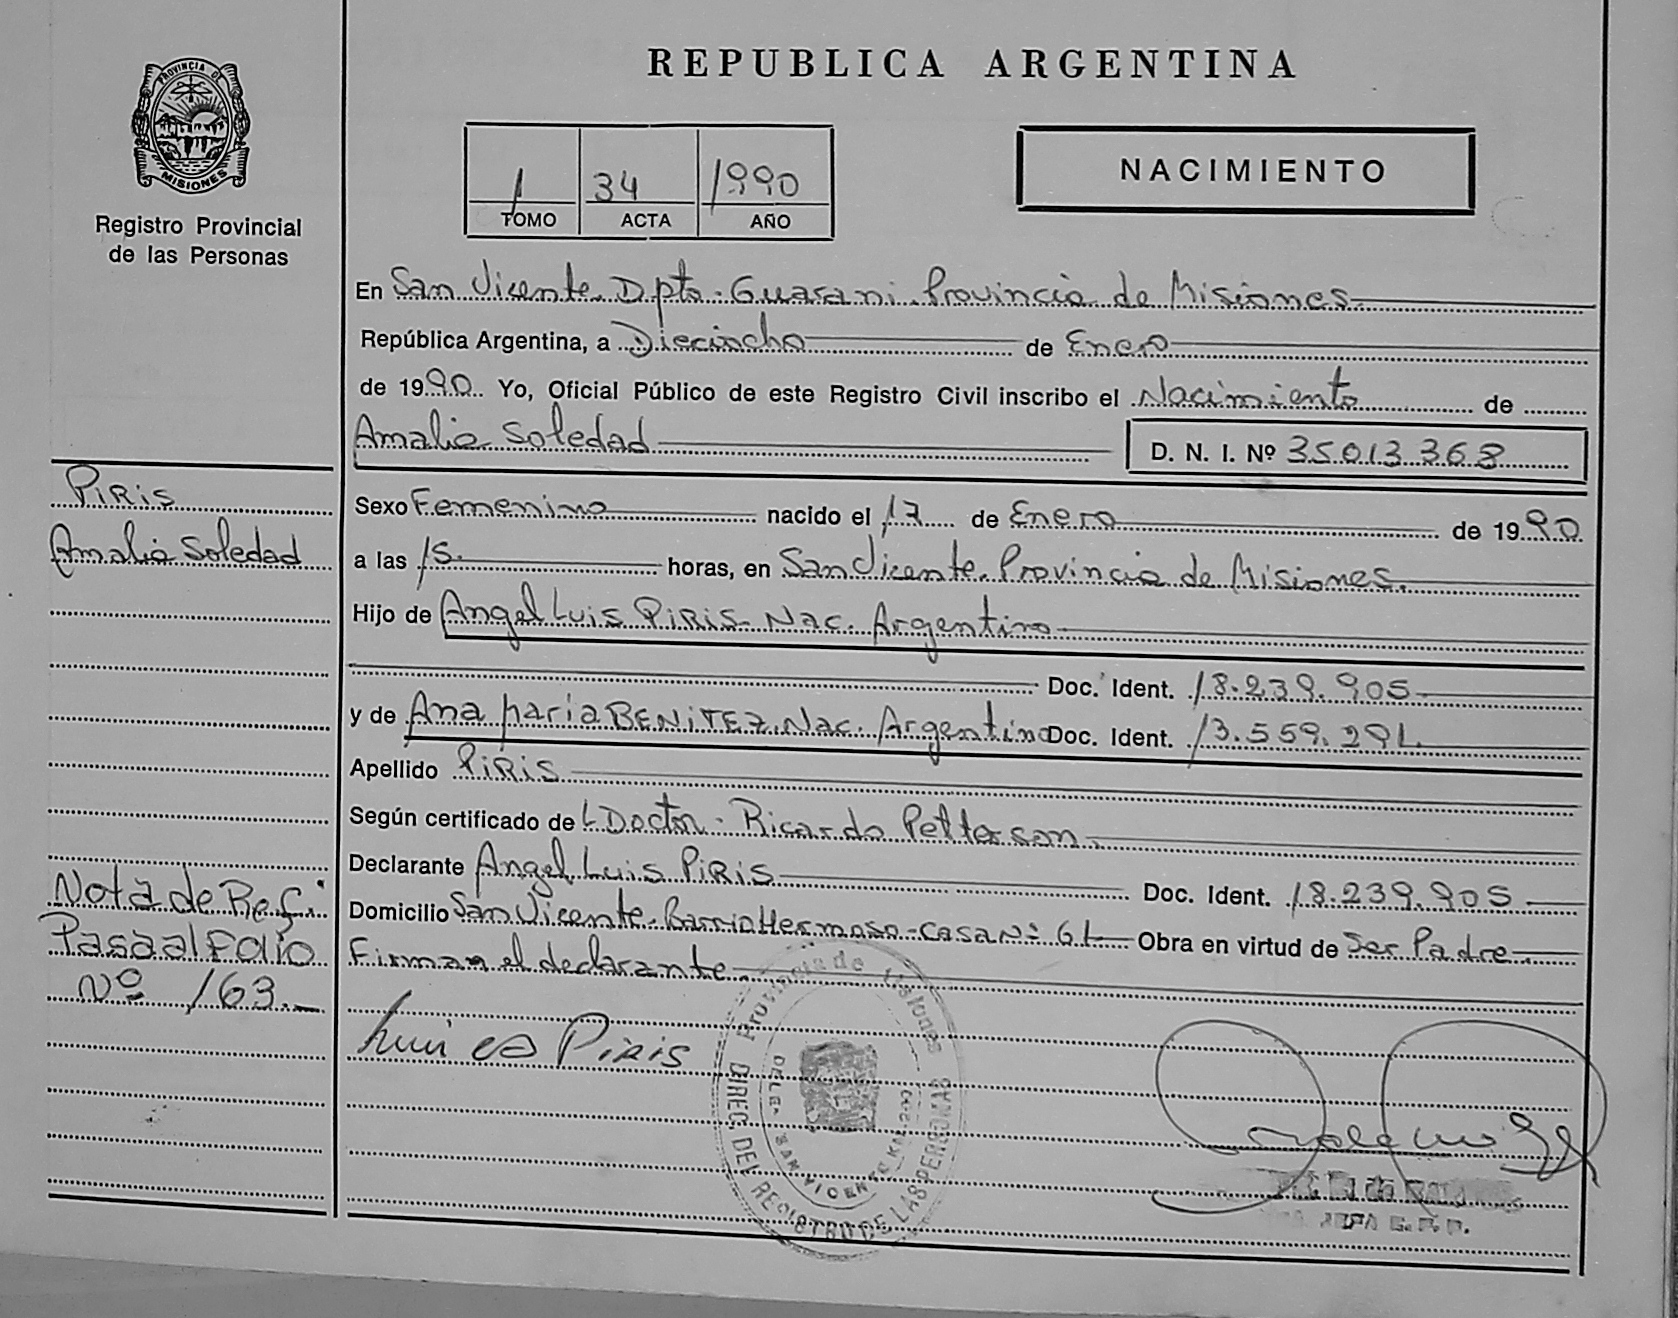 REPUBLICA ARGENTINA
PROVINCIA DE
MISIONES
Registro Provincial
de las Personas
1 34 1990
TOMO ACTA AÑO
NACIMIENTO
En San Vicente Dpto. Guarani Provincia de Misiones
República Argentina, a Dieciocho de Enero
de 1990 Yo, Oficial Público de este Registro Civil inscribo el Nacimiento de
Amalia Soledad D. N. I. Nº 35.013.368
PIRIS
Amalia Soledad
Sexo Femenino nacido el 17 de Enero de 1990
a las 15 horas, en San Vicente Provincia de Misiones.
Hijo de Angel Luis PIRIS - Nac. Argentino
Doc. Ident. 18.239.905
y de Ana Maria BENITEZ Nac. Argentina Doc. Ident. 13.559.291
Apellido PIRIS
Según certificado del Doctor - Ricardo Petterson
Declarante Angel Luis PIRIS Doc. Ident. 18.239.905
Domicilio San Vicente - Barrio Hermoso - Casa Nº 61 Obra en virtud de Ser Padre
Firman el declarante
Nota de Ref.
Pasa al Folio
Nº 163
Luis PIRIS
Provincia de Misiones
DIREC. DEL REGISTRO DE LAS PERSONAS
SAN VICENTE